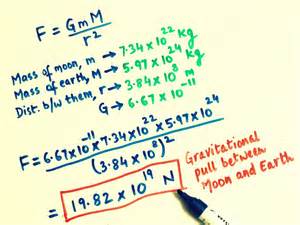 F = GmM / r²
Mass of moon, m → 7.34 x 10²² kg
Mass of earth, M → 5.97 x 10²⁴ kg
Dist. b/w them, r → 3.84 x 10⁸ m
G → 6.67 x 10⁻¹¹
F = 6.67x10⁻¹¹ x 7.34 x 10²² x 5.97 x 10²⁴ / (3.84 x 10⁸)²
= 19.82 x 10¹⁹ N
Gravitational
pull between
Moon and Earth